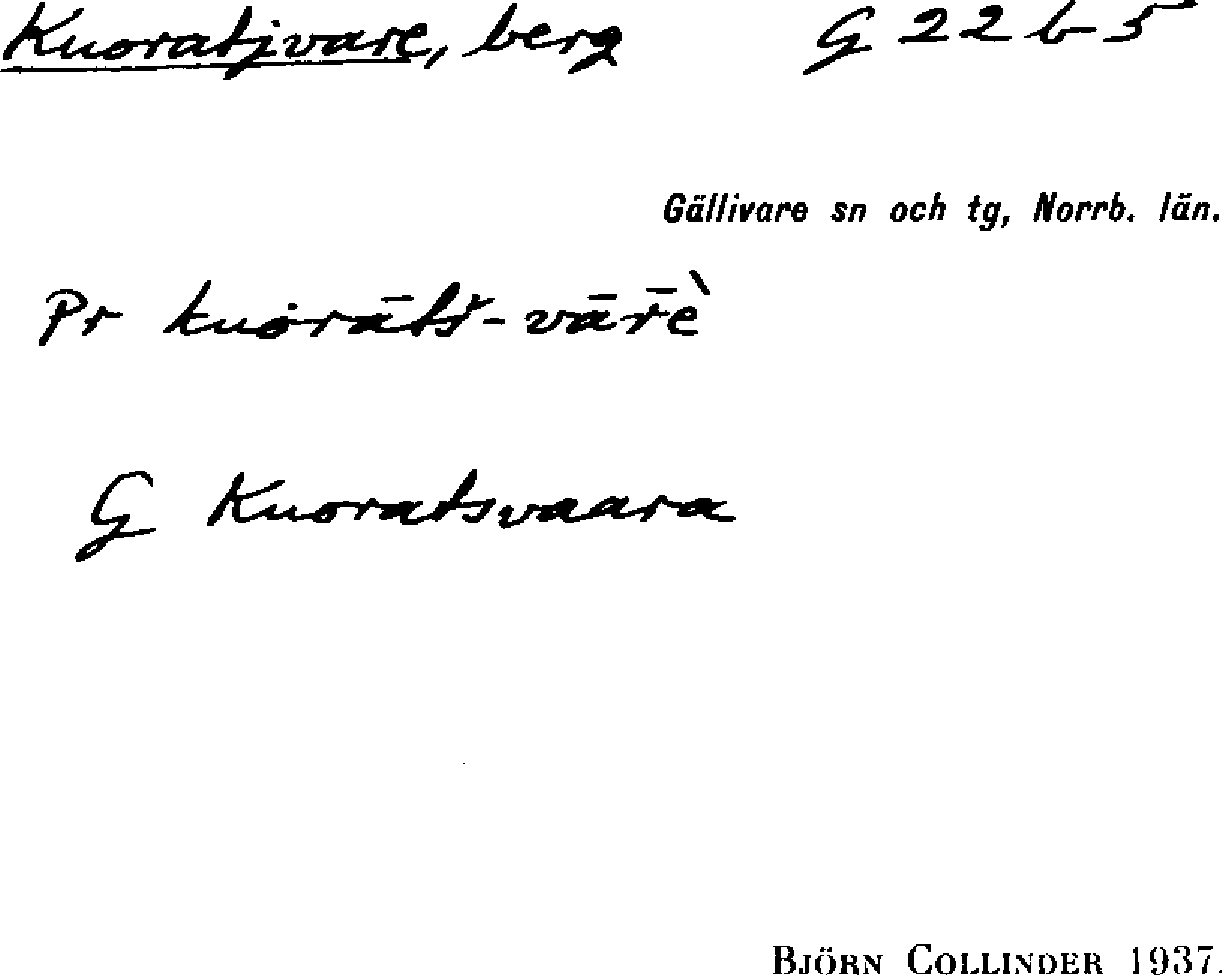 Kuoratjvare, berg G 22 b 5
Gällivare sn och tg, Norrb. län.
Pr kuȯrātš-vār̄ḕ
G Kuoratsvaara
BJÖRN COLLINDER 1937.